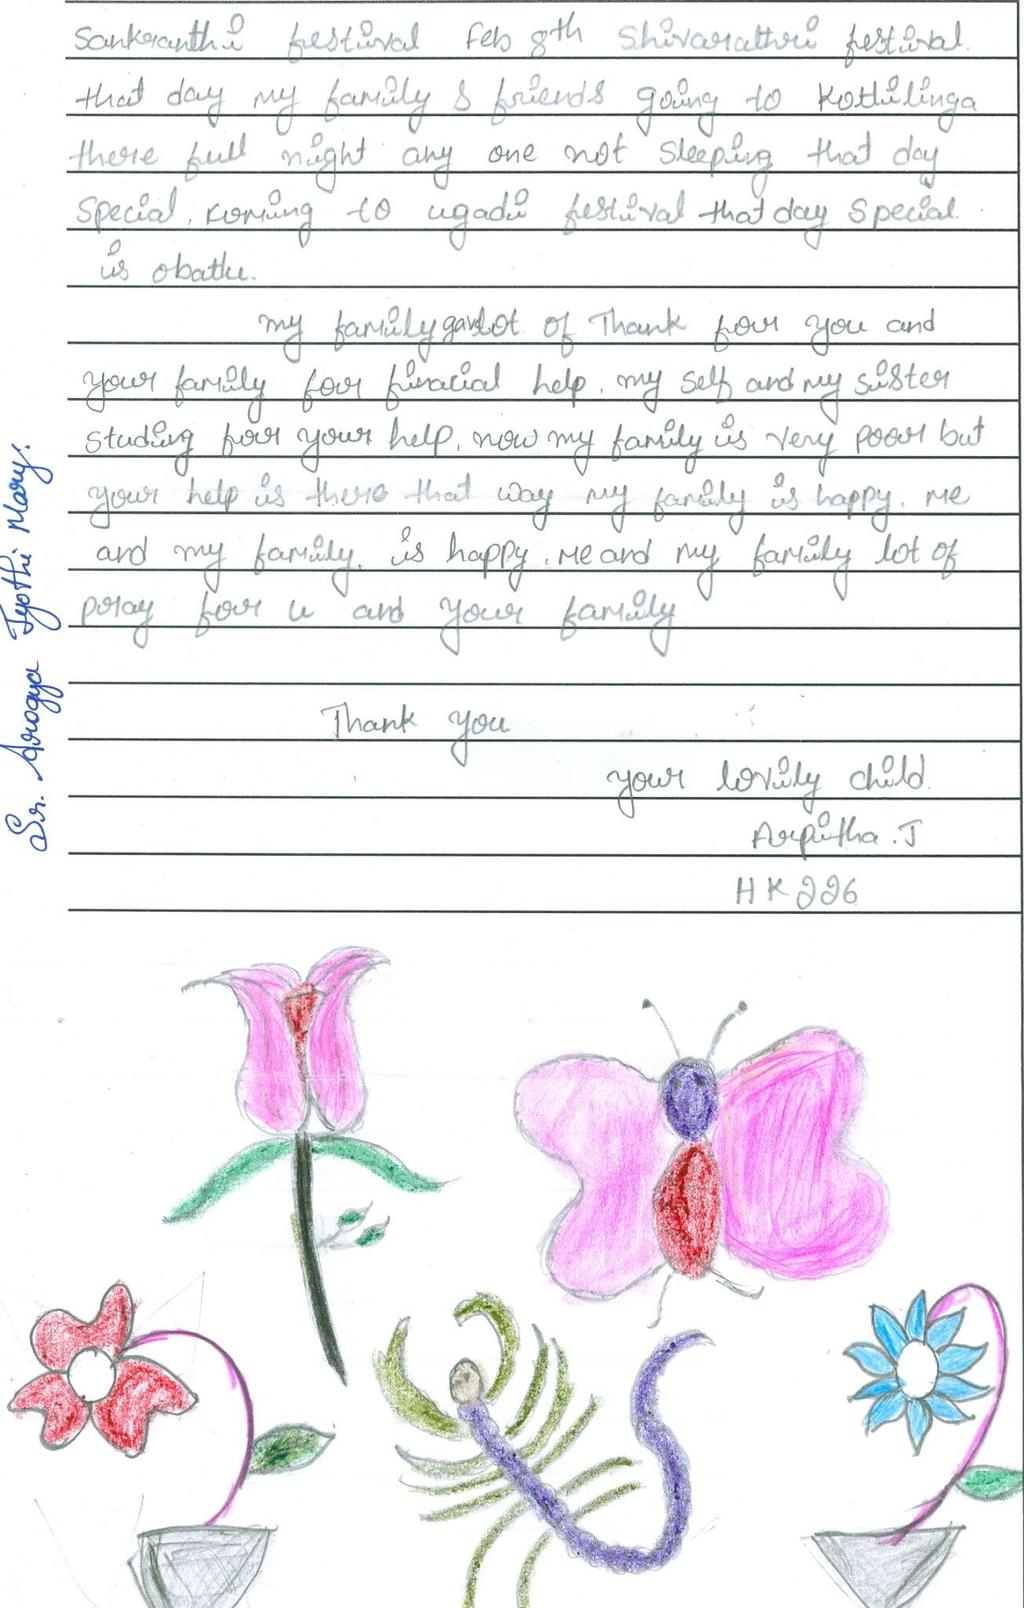 Sankranthi festival Feb 8th Shivarathri festival.
that day my family & friends going to Kotilinga
there full night any one not sleeping that day
special. Koming to ugadi festival that day special
is obattu.
my family gave lot of Thank for you and
your family for finacial help. my self and my sister
studing for your help. now my family is very poor but
your help is there that way my family is happy. me
and my family. is happy. me and my family lot of
pray for u and your family
Thank you
your lovily child.
Arpitha .J
HK226
Sr. Arogya Jyothi Mary.